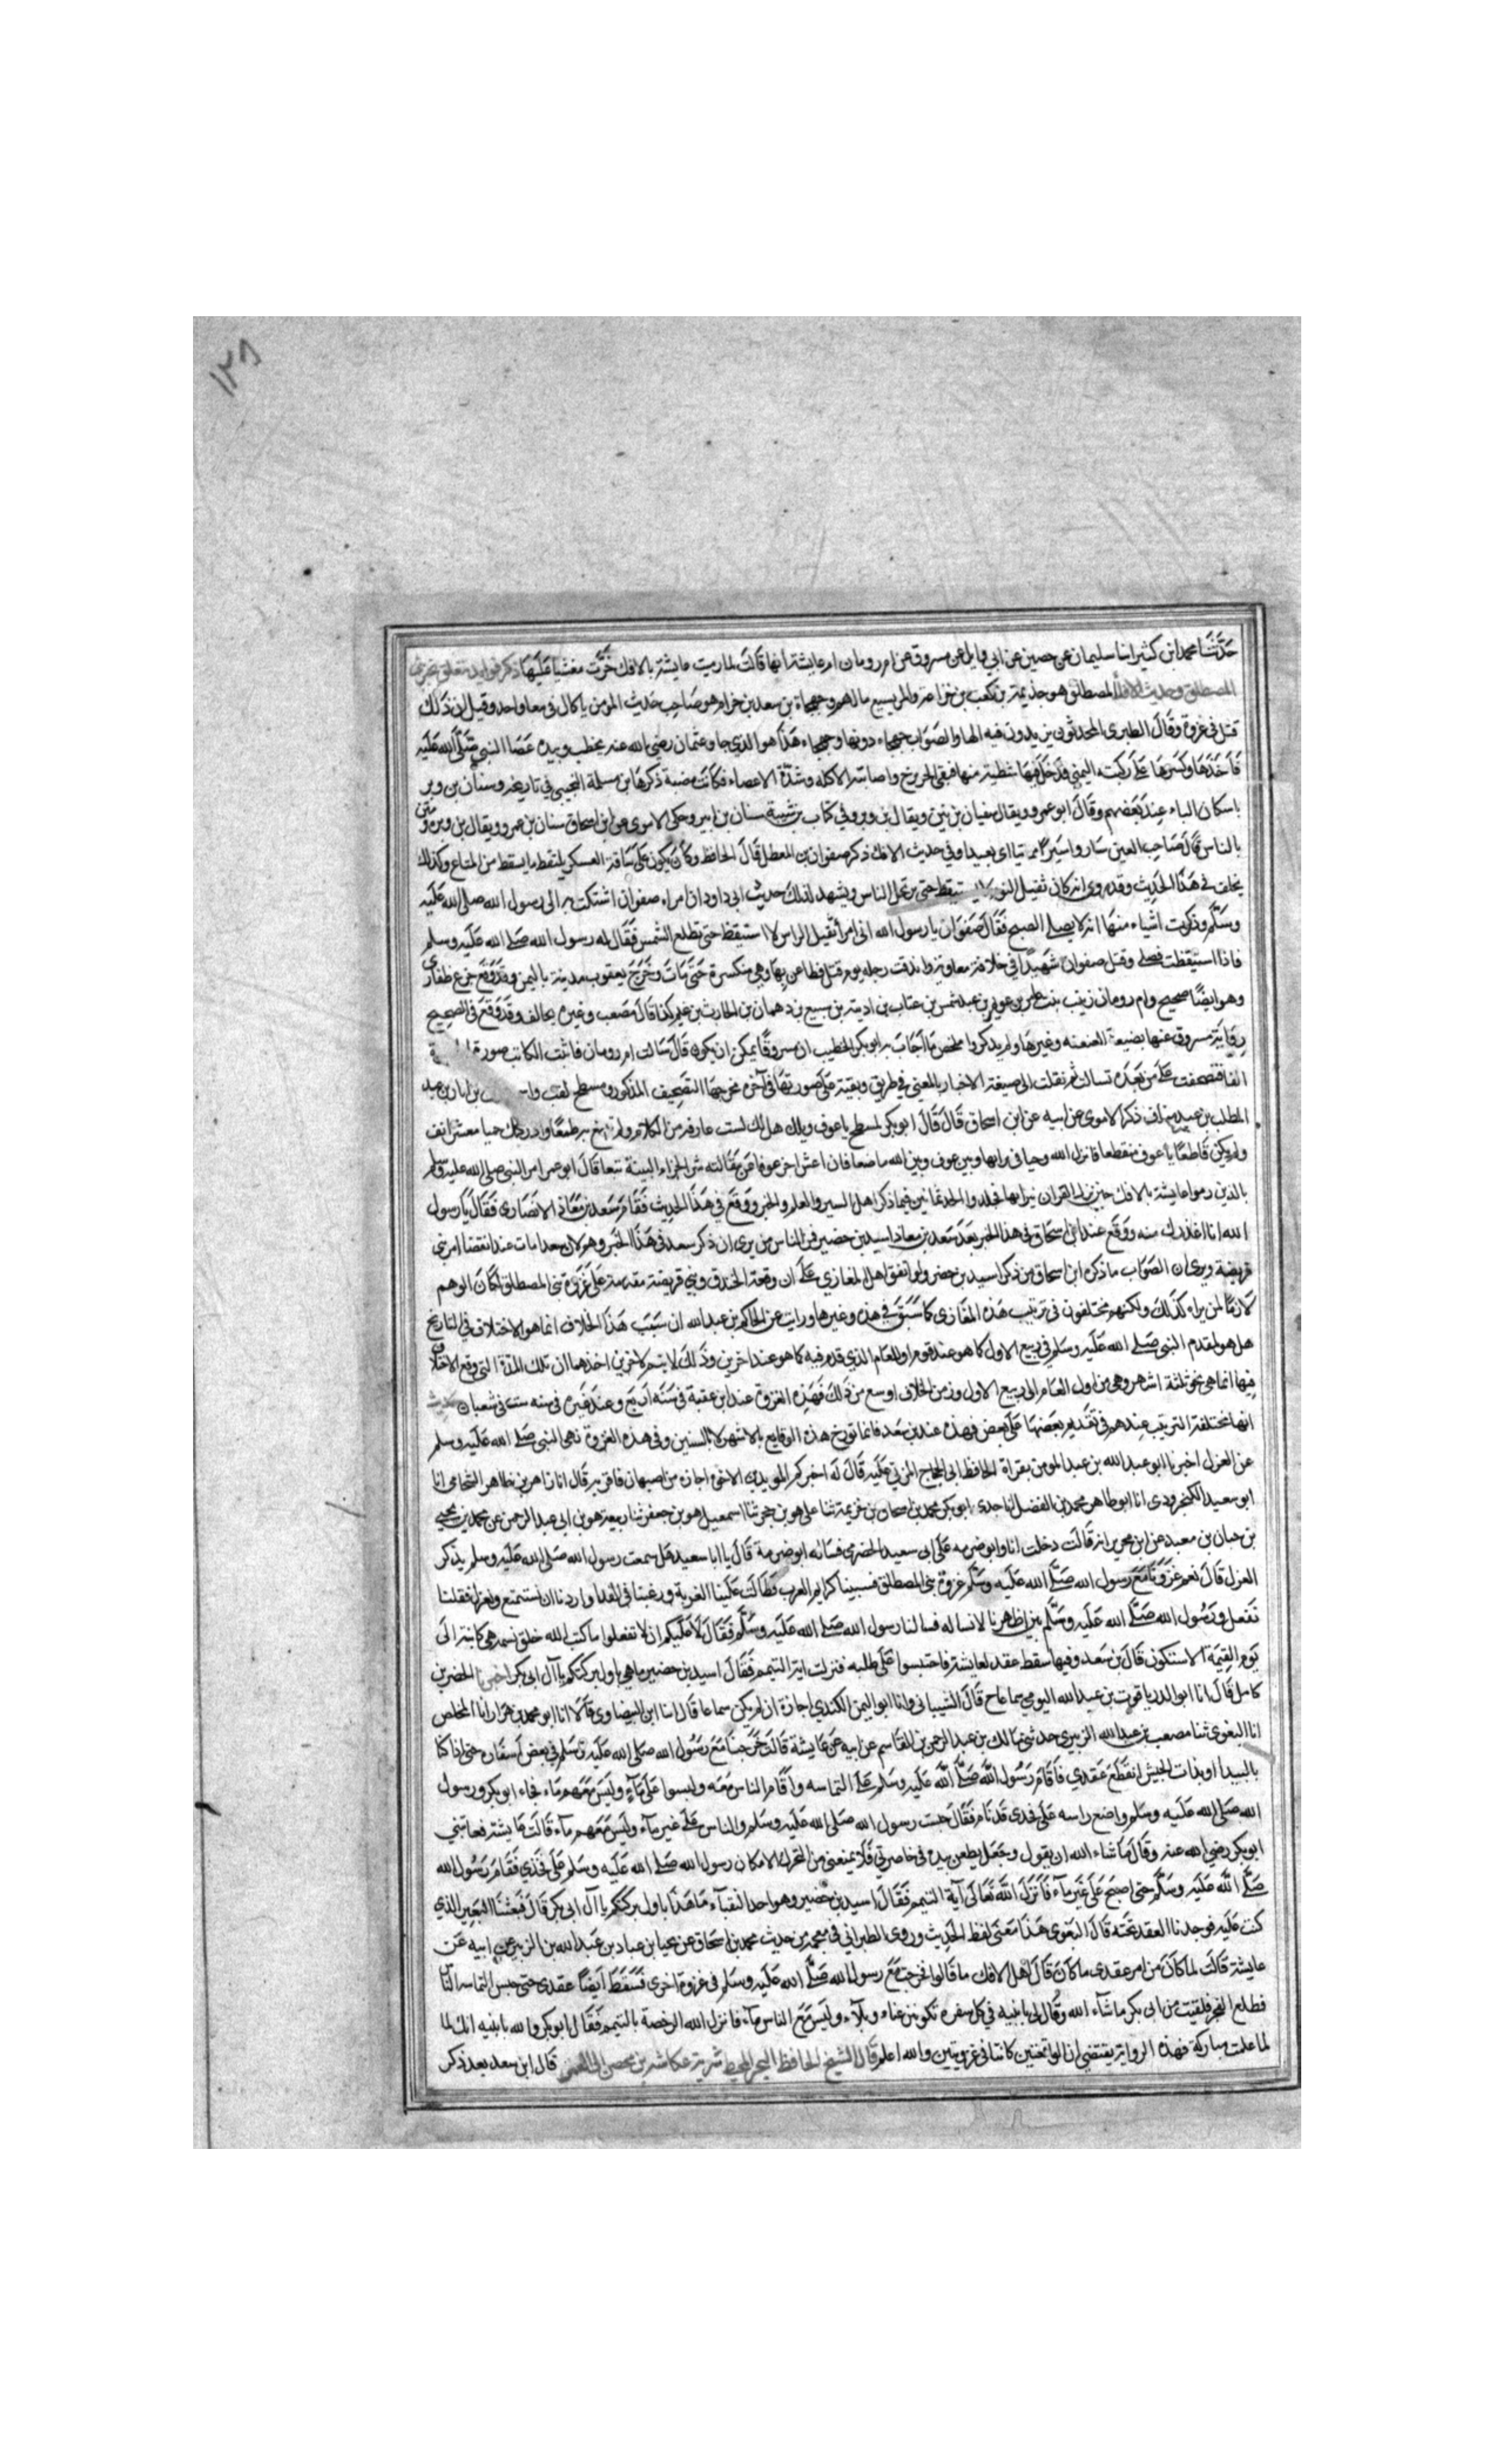 ١٢٨
حدثنا محمد ابن كثير انا سليمان عن حصين عن ابي وايل عن مسروق عن ام رومان ام عايشة انها قالت لما رميت عايشة بالافك خرت مغشيا عليها ذكر فوايد تتعلق بخبر بني
المصطلق وحديث الافك المصطلق هو جذيمة بن كعب بن خزاعة والمريسيع ما لهم وجهجاة بن سعد بن حرام هو صاحب حديث المومن ياكل في معا واحد وقيل ان ذلك
قتل في غزوة وقال الطبري المحدثون يزيدون فيه الها والصواب جهجاء دونها وجهجاء هذا هو الذي جا وعثمان رضي الله عنه يخطب وبيده عصا النبي صلى الله عليه
فاخذها وكسرها على ركبته اليمني فدخل فيها شظية منها فبقي الجرح واصابته الاكله وشدة الاعصاء فكانت مضبة ذكرها ابن مسلمة التجيبي في تاريخه وسنان بن وبر
باسكان الباء عند بعضهم وقال ابو عمرو ويقال سفيان بن تيم ويقال بن وبر وفي كتاب بن شبة سنان بن ابير وحكى الاموي عن ابن اسحاق سنان بن عمرو ويقال بن وبره ومتن
بالناس قال صاحب العين سار واسيرا مماتيا اي بعيدا وفي حديث الافك ذكر صفوان بن المعطل قال الحافظ وكان يكون على ساقة العسكر يلتقط ما يسقط من المتاع وكذلك
يخلف في هذا الحديث وقد روي انه كان ثقيل النوم لا يستيقظ حتى يرتحل الناس ويشهد لذلك حديث ابي داود ان امراه صفوان اشتكت به الى رسول الله صلى الله عليه
وسلم وذكرت اشياء منها انه لا يصلي الصبح فقال صفوان يا رسول الله اني امرأ ثقيل الراس لا استيقظ حتى تطلع الشمس فقال له رسول الله صلى الله عليه وسلم
فاذا استيقظت فصل وقتل صفوان شهيدا في خلافة معاوية واندقت رجله يوم قتل فطاعن بها وهي منكسرة حتى مات وخرج يعقوب مدينة باليمن وقد وقع جزع ظفاري
وهو ايضا صحيح وام رومان زينب بنت عامر بن عويمر بن عبد شمس بن عتاب بن اذينة بن سبيع بن دهمان بن الحارث بن غنم كذا قال مصعب وغيره يخالفه وقد وقع في الصحيح
رواية مسروق عنها بصيغة العنعنه وغيرها ولم يدكروا ملخص ما اجاب به ابو بكر الخطيب ان مسروقا يمكن ان يكون قال سالت ام رومان فاثبت الكاتب صورة
الفا فتصحفت على من بعده تسالت ثم نقلت الى صيغة الاخبار بالمعني في طريق وبقيت على صورتها في آخره مخرجها التصحيف المذكور ومسطح لقب بن اباد بن عبد
المطلب بن عبد مناف ذكر الاموي عن ابيه عن ابن اسحاق قال قال ابو بكر لمسطح يا عوف ويلك هل لك لست عارفه من الكلام ولم تبتغ به طمعا وادركك حيا معشر انف
ولم يكن قاطعا يا عوف منقطعا فانزل الله وحيا في برابها وبين عوف وبين الله ما صنعا فان اعش اجز عوفا عن مقالته شر الجزاء البينة تبعا قال ابو عمر امر النبي صلى الله عليه وسلم
بالذين رموا عايشة بالافك حين نزل القران ببراتها فجلدوا الحد ثمانين فيما ذكر اهل السير والعلم والخبر ووقع في هذا الحديث فقام سعد بن معاذ الانصاري فقال يا رسول
الله انا اعذرك منه ووقع عند ابن اسحاق في هذا الخبر بعد سعد بن معاذ اسيد بن حضير فمن الناس من يرى ان ذكر سعد في هذا الخبر وهم لان سعدا مات عند انقضا امر بني
قريضة ويرى ان الصواب ما ذكره ابن اسحاق من ذكر اسيد بن حضير ولو اتفق اهل المغازي على ان وقعة الخندق وبني قريضة مقدمة على غزوة بني المصطلق لكان الوهم
لازما لمن يراه كذلك ولكنهم مختلفون في ترتيب هذه المغازي كما سبق في هذه وغيرها ورايت عن الحاكم بن عبد الله ان سبب هذا الخلاف انما هو الاختلاف في التاريخ
هل هو لمقدم النبي صلى الله عليه وسلم في ربيع الاول كما هو عند قوم او للعام الذي قدم فيه كما هو عند اخرين وذلك لا يتم لاخرين اخذهما ان تلك المدة التي وقع الاختلاف
فيها انما هي نحو ثلثة اشهر وهي من اول العام الى ربيع الاول وزمن الخلاف اوسع من ذلك فهذه الغزوة عند ابن عقبة في سنه اربع وعند غيره في سنه ست في شعبان
انها مختلفة الترتيب عندهم في تقديم بعضها على بعض فهذه عند بن سعد فانما تورخ هذه الوقايع بالاشهر لا بالسنين وفي هذه الغزوة نهى النبي صلى الله عليه وسلم
عن العزل اخبرنا ابو عبد الله بن عبد المومن بقراة الحافظ ابي الحجاج المزي عليه قال له اخبركم المويد بن الاخوة اجازه من اصبهان فاقر به قال انا زاهر بن طاهر الشحامي انا
ابو سعيد الكنجرودي انا ابو طاهر محمد بن الفضل انا جدي ابو بكر محمد بن اسحاق بن خزيمة ثنا علي هو بن حجر ثنا اسمعيل هو بن جعفر ثنا ربيعة هو بن ابي عبد الرحمن عن محمد بن يحيى
بن حبان بن معبد عن ابن محيريز انه قالت دخلت انا وابو ضرمه على ابي سعيد الخضري فساله ابو ضرمة قال يا ابا سعيد هل سمعت رسول الله صلى الله عليه وسلم يذكر
العزل قال نعم غزونا مع رسول الله صلى الله عليه وسلم غزوة بني المصطلق فسبينا كرايم العرب فطالت علينا الغربة ورغبنا في الفدا واردنا ان نستمتع ونعزل فقلنا
نفعل ورسول الله صلى الله عليه وسلم بين اظهرنا لا نساله فسالنا رسول الله صلى الله عليه وسلم فقال لا عليكم ان لا تفعلوا ما كتب الله خلق نسمه هي كاينة الى
يوم القيمة الا ستكون قال بن سعد وفيها سقط عقد لعايشة فاحتبسوا على طلبه فنزلت اية التيمم فقال اسيد بن حضير ما هي باول بركتكم يا آل ابي بكر اخبرنا الخضر بن
كامل قال انا ابو الدر ياقوت بن عبد الله اليومي سماعا ح قال الشيباني وانا ابو اليمن الكندي اجازة ان لم يكن سماعا قال انا ابن البيضاوي قالا انا ابو محمد بن هزار انا المخلص
انا البغوي ثنا مصعب بن عبد الله الزبيري حدثني مالك بن عبد الرحمن بن القاسم عن ابيه عن عايشة قالت خرجنا مع رسول الله صلى الله عليه وسلم في بعض اسفاره حتى اذا كنا
بالبيدا او بذات الجيش انقطع عقدي فاقام رسول الله صلى الله عليه وسلم على التماسه واقام الناس معه وليسوا على ماء وليس معهم ماء فجاء ابو بكر ورسول
الله صلى الله عليه وسلم واضع راسه على فخدي قد نام فقال حبست رسول الله صلى الله عليه وسلم والناس على غير ماء وليس معهم ماء قالت عايشة فعاتبني
ابو بكر رضي الله عنه وقال ما شاء الله ان يقول وجعل يطعن بيده في خاصرتي فلا يمنعني من التحرك الا مكان رسول الله صلى الله عليه وسلم على فخذي فقام رسول الله
صلى الله عليه وسلم حتى اصبح على غير ماء فانزل الله تعالى آية التيمم فقال اسيد بن حضير وهو احد النقباء ما هذا باول بركتكم يا آل ابي بكر قال فبعثنا البعير الذي
كنت عليه فوجدنا العقد تحته قال البغوي هذا معنى لفظ الحديث وروى الطبراني في معجمه من حديث محمد بن اسحاق عن يحيا بن عباد بن عبد الله بن الزبير عن ابيه عن
عايشة قالت لما كان من امر عقدي ما كان قال اهل الافك ما قالوا فخرجت مع رسول الله صلى الله عليه وسلم في غزوة اخرى فسقط ايضا عقدي حتى حبس التماسه الناس
فطلع الفجر فلقيت من ابي بكر ما شآء الله وقال لي يا بنيه في كل سفره تكونين عناء وبلاء وليس مع الناس ماء فانزل الله الرخصة بالتيمم فقال ابو بكر والله يا بنيه انك لما
لما علمت مباركة فهذه الرواية يقتضي ان الواقعتين كانتا في غزوتين والله اعلم قال الشيخ الحافظ البحر المحيط سرية عكاشه بن محصن الى الغمر قال ابن سعد بعد ذكر